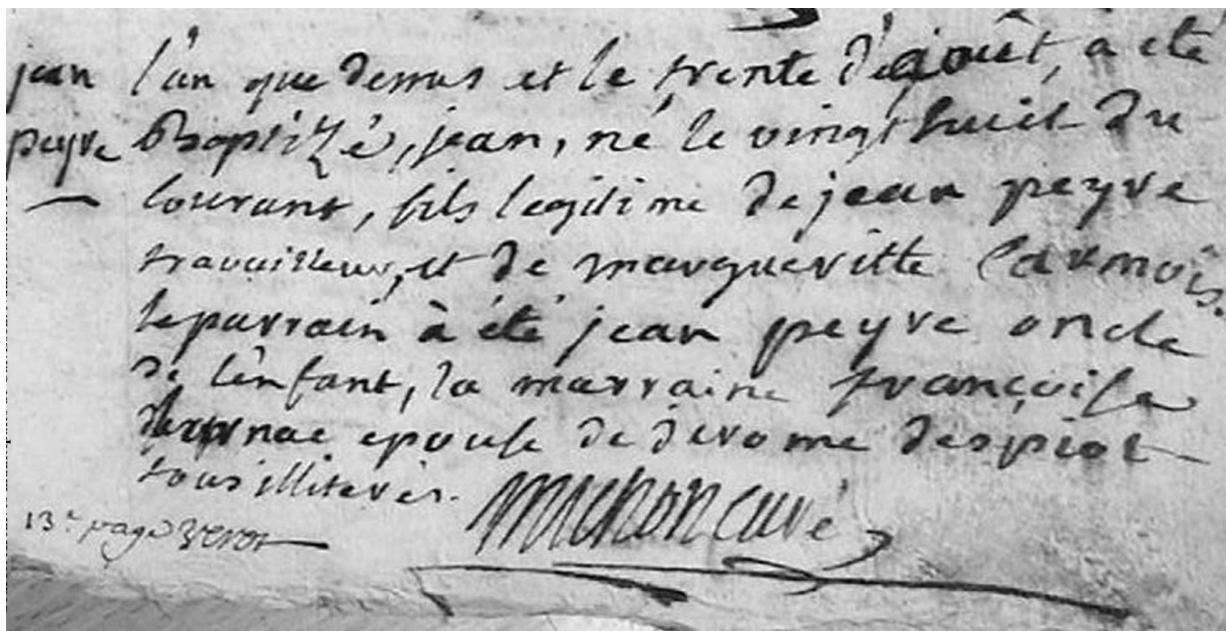 jean
peyre
l'an que dessus et le trente d'aouêt, a eté
Baptizé, jean, né le vingt huit du
courant, fils legitime de jean peyre
travailleur, et de margueritte Larmois.
le parrain à été jean peyre oncle
de l'enfant, la marraine françoise
epouse de derome despiot
tous illiterés.
michon curé
13e page verso